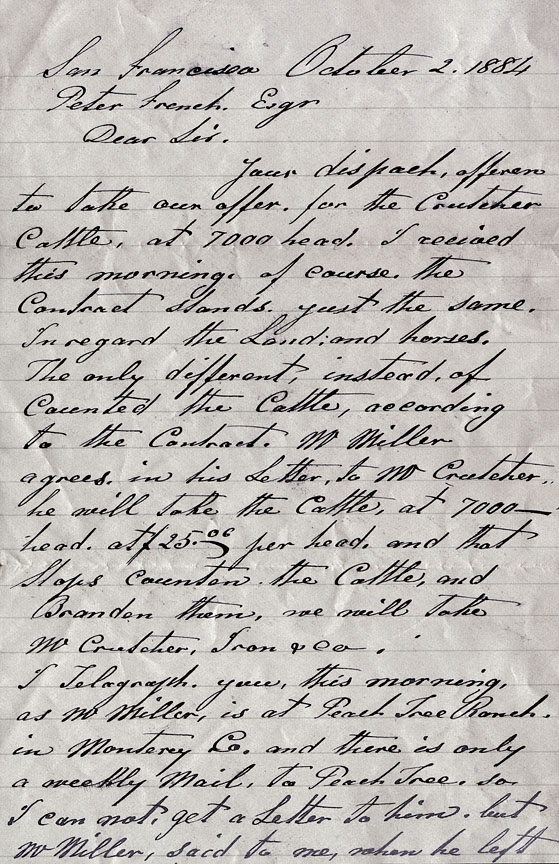 San Francisco October 2. 1884
Peter French. Esqr
Dear Sir.
Your dispach, offeren
to take our offer. for the Crutcher
Cattle, at 7000 head. I recived
this morning. of course. the
Contract stands. yust the same.
In regard the Land: and horses.
The only different, instead. of
Counted the Cattle, according
to the Contract. Mr Miller
agrees. in his Letter, to Mr Crutcher..
he will take the Cattle, at 7000—
head. at $25.00 per head. and that
Stops counten. the Cattle, and
Branden them, we will take
Mr Crutcher, Iron & co.
I Telagraph. you, this morning,
as Mr Miller, is at Peach Tree Ranch.
in Monterey Co. and there is only
a weekly Mail, to Peach Tree. so.
I can not, get a Letter to him. but
Mr Miller, said to me, when he left